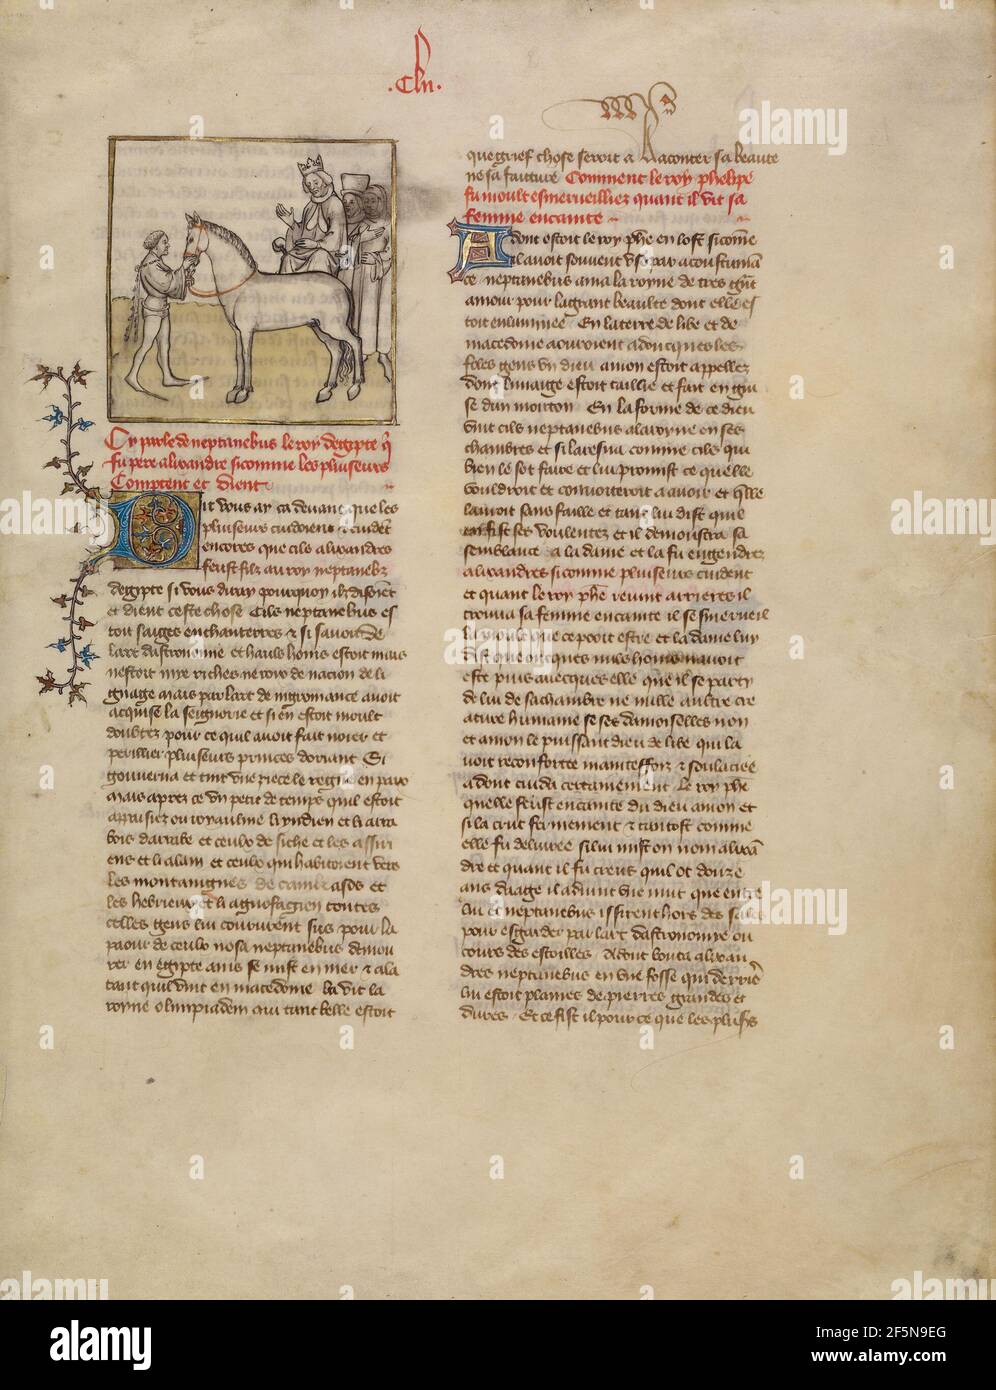 .Clii.
Cy parle de neptanebus le roy degipte q̄
fu pere alixandre si comme les pluiseurs
Comptent et dient
Dit vous ay ca devant que les
pluiseurs cuidoient & cuidēt
encores que cilz alixandres
feust filz au roy neptanebz
degipte si vous diray pourquoy ilz disoiēt
et dient ceste chose Cils neptanebus es
toit saiges enchanterres & si savoit de
lart dastronomie et hauls homs estoit mais
nestoit mye riches ne roy de nacion de li
gnage mais par lart de nigromance avoit
acquise la seignorie et si en estoit moult
doubtez pour ce quil avoit fait noier et
perillier pluiseurs princes doriant Si
gouverna et tint une piece le regne en paix
mais aprez ce un petit de temps quil estoit
appaisiez ou royaulme li yndien et li arra
bois darrabe et ceulx de siche et les assiri
ens et li alain et ceulx qui habitoient vers
les montaignes de
les hebrieux et li agnofagien toutes
celles gens lui coururent sus pour la
paour de ceulx nosa neptanebus demou
rer en egipte anis se mist en mer & ala
tant quil vint en macedoine la vit la
royne olimpiadem qui tant belle estoit
que grief chose seroit a Raconter sa beaute
ne sa faiture Comment le roy phelippe
fu moult esmerveilliez quant il vit sa
femme encainte
Adont estoit le roy phē en lost si cōme
il avoit souvent us par acoustuman
ce neptanebus ama la royne de tres grāt
amour pour la grant beaulte dont elle es
toit enluminee En la terre de libe et de
macedoine aouroient adoncques les
foles gens un dieu amon estoit appellez
dont lymaige estoit taillie et fait en gui
se dun mouton En la forme de ce dieu
vint cils neptanebus a la royne en ses
chambres et si laresna comme cils qui
bien le sot faire et lui promist ce quelle
vouldroit et convoiteroit a avoir et qlle
lauroit sans faille et tant lui dist quil
en fist ses voulentez et il demoustra sa
semblance a la dame et la fu engendrez
alixandres si comme pluiseurs cuident
et quant le roy phē revint arrieres il
trouva sa femme encainte il se smerveil
la moult que ce pooit estre et la dame luy
dist que oncques nuls homs navoit
este puis avecques elle que il se party
de lui de sa chambre ne nulle aultre cre
ature humaine se ses damoiselles non
et amon le puissant dieu de libe qui la
voit reconforte mainteffoiz & soulaciee
adont cuida certainement le roy phē
quelle feust encainte du dieu amon et
si la crut fermement & tantost comme
elle fu delivree si lui mist on nom alixā
dre et quant il fu creus quil ot douze
ans daage il advint une nuit que entre
lui et neptanebus issirent hors des sales
pour esgarder par lart dastronomie ou
cours des estoilles Adont bouta alixan
dres neptanebus en une fosse qui derriē
lui estoit plaines de pierres grandes et
dures Et ce fist il pour ce que les pluss
alamy
alamy
Image ID: 2F5N9EG
www.alamy.com